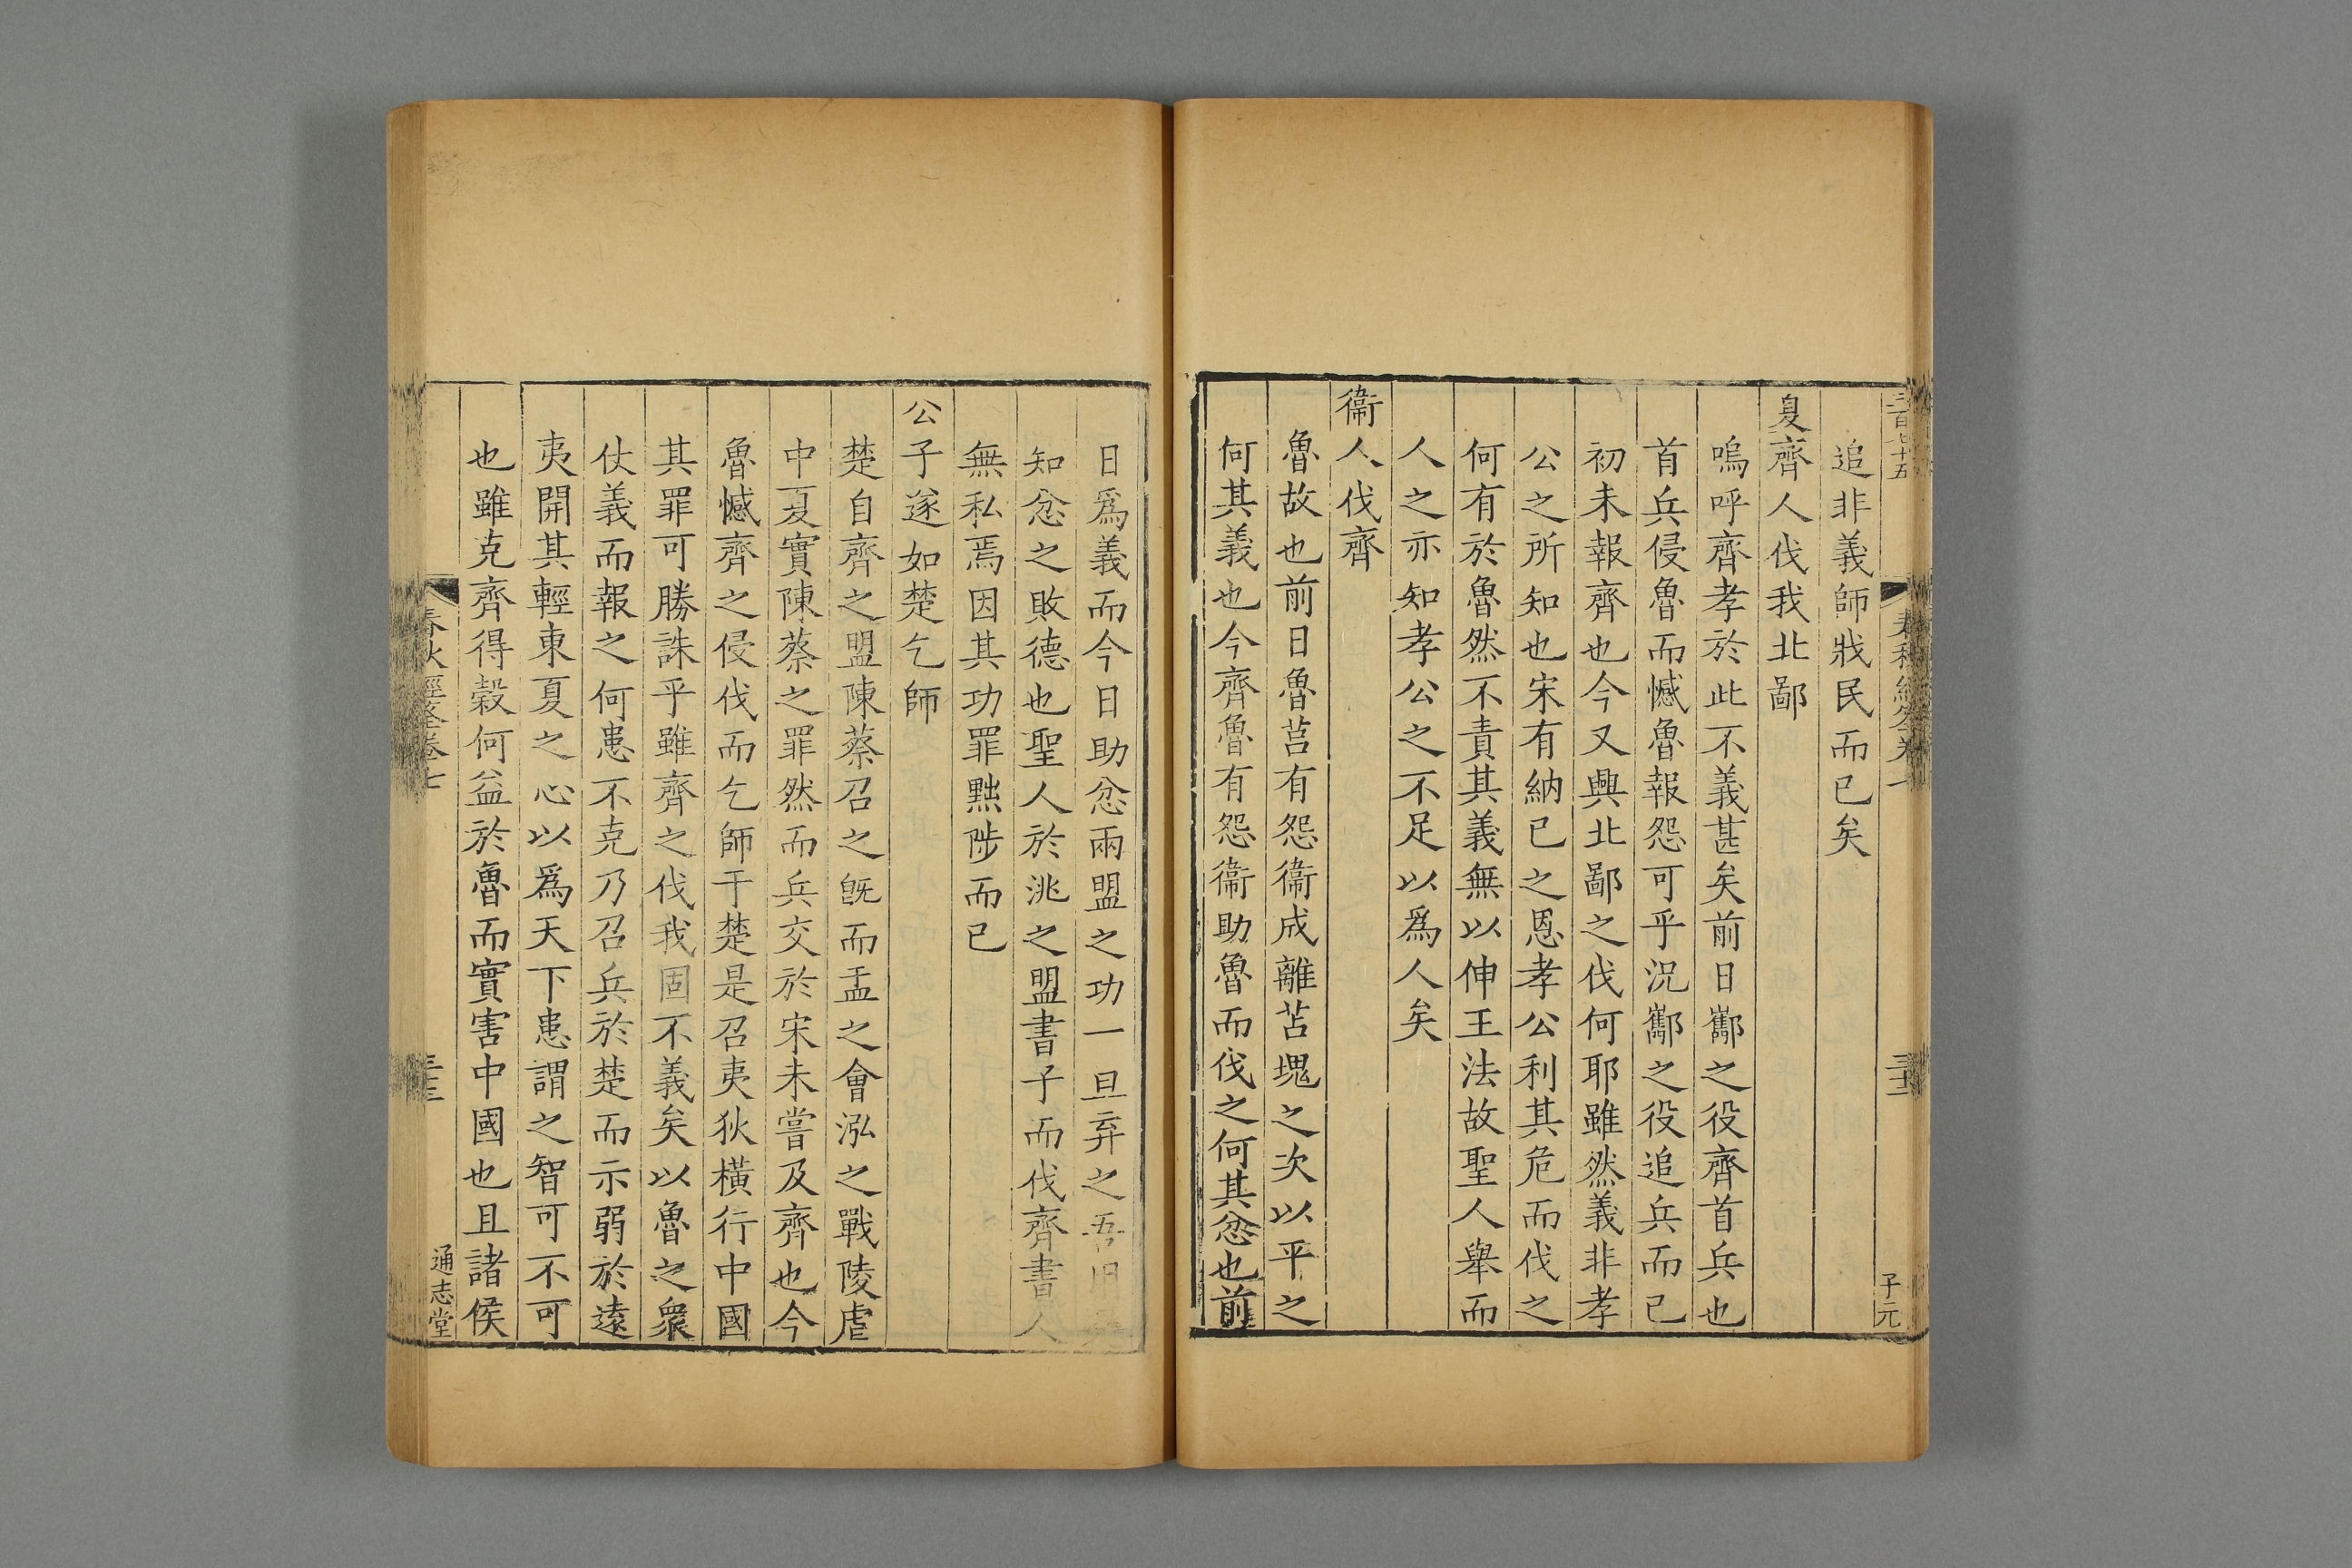 追非義師戕民而已矣
夏齊人伐我北鄙
嗚呼齊孝於此不義甚矣前日酅之役齊首兵也
首兵侵魯而憾魯報怨可乎況酅之役追兵而已
初未報齊也今又興北鄙之伐何耶雖然義非孝
公之所知也宋有納已之恩孝公利其危而伐之
何有於魯然不責其義無以伸王法故聖人舉而
人之亦知孝公之不足以爲人矣
衞人伐齊
魯故也前日魯莒有怨衞成離苫塊之次以平之
何其義也今齊魯有怨衞助魯而伐之何其忿也前
日爲義而今日助忿兩盟之功一旦弃之吾用
知忿之敗德也聖人於洮之盟書子而伐齊書人
無私焉因其功罪黜陟而已
公子遂如楚乞師
楚自齊之盟陳蔡召之旣而盂之會泓之戰陵虐
中夏實陳蔡之罪然而兵交於宋未嘗及齊也今
魯憾齊之侵伐而乞師于楚是召夷狄橫行中國
其罪可勝誅乎雖齊之伐我固不義矣以魯之衆
仗義而報之何患不克乃召兵於楚而示弱於遠
夷開其輕東夏之心以爲天下患謂之智可不可
也雖克齊得穀何益於魯而實害中國也且諸侯
三百七十五
子元
春秋經筌卷七
通志堂